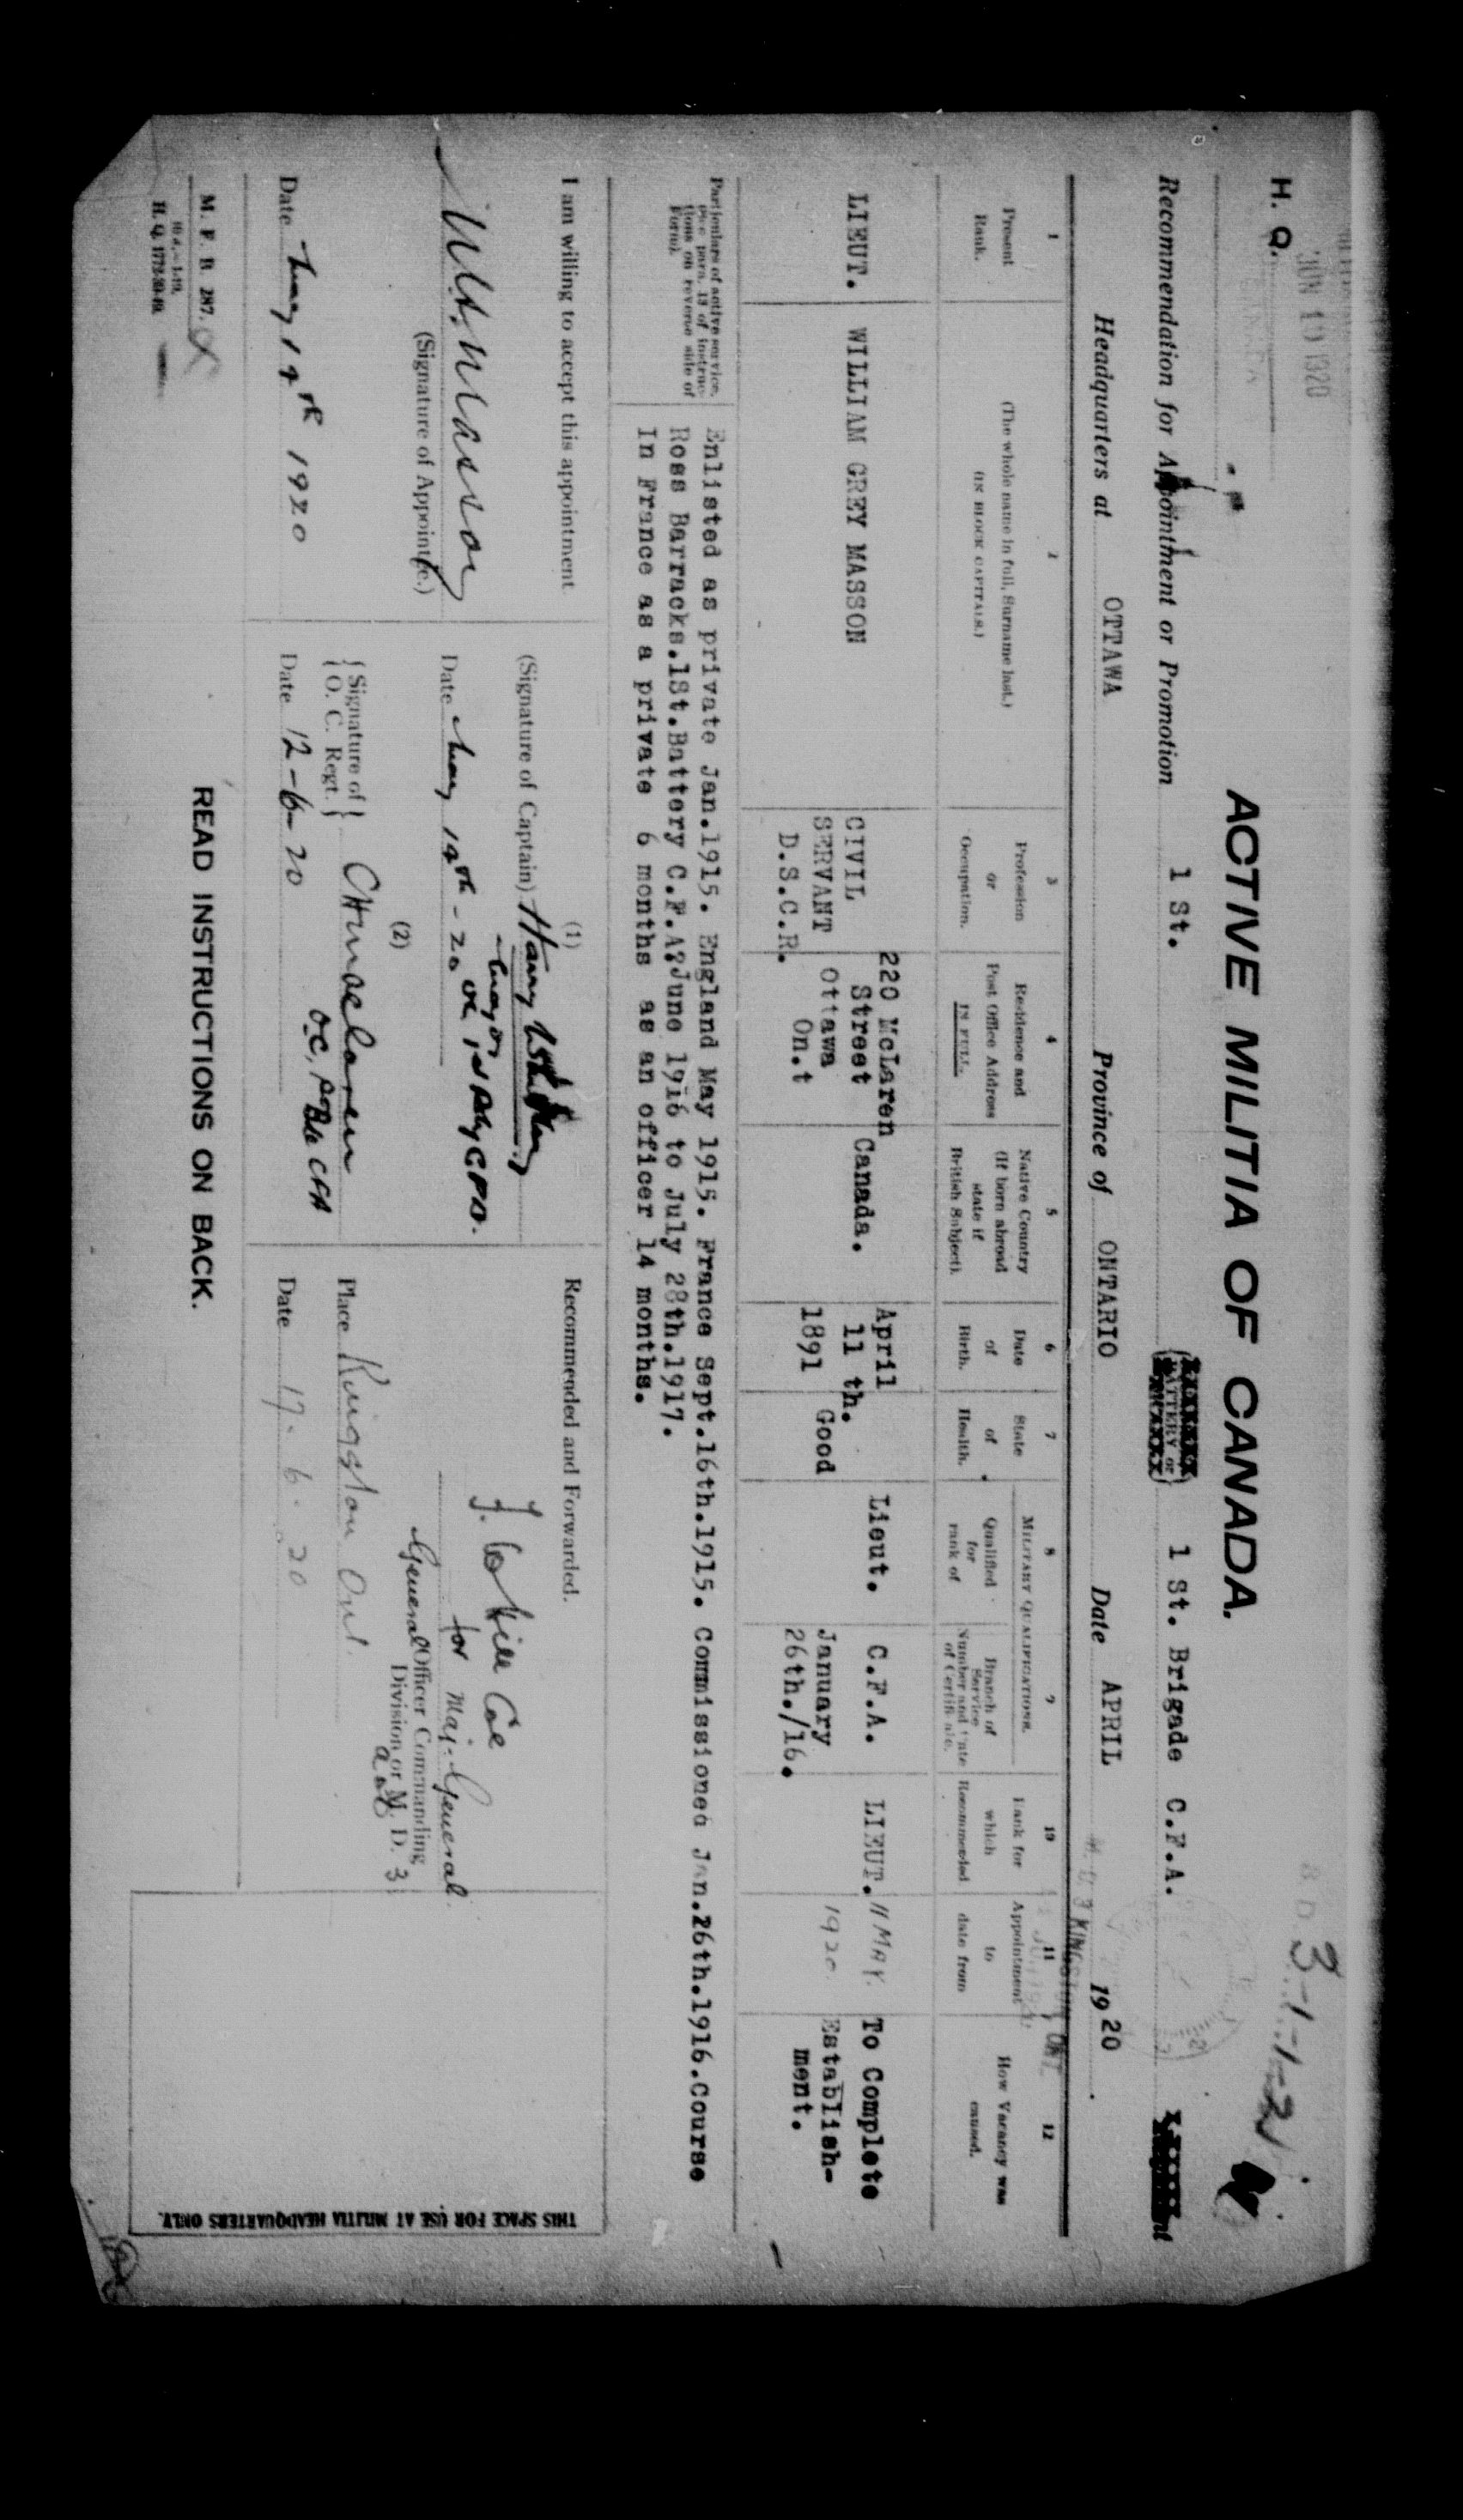 H. Q.
JUN 19 1920
3-1-2
ACTIVE MILITIA OF CANADA.
Recommendation for Appointment or Promotion 1 St. BATTERY or 1 St. Brigade C.F.A.
Headquarters at OTTAWA Province of ONTARIO Date APRIL 1920
1 Present Rank.
2 (The whole name in full, Surname last.) (IN BLOCK CAPITALS.)
3 Profession or Occupation.
4 Residence and Post Office Address IN FULL.
5 Native Country (If born abroad state if British Subject).
6 Date of Birth.
7 State of Health.
MILITARY QUALIFICATIONS.
8 Qualified for rank of
9 Branch of Service Number and Date of Certificate.
10 Rank for which Recommended
11 Appointment to date from
12 How Vacancy was caused.
LIEUT.
WILLIAM GREY MASSON
CIVIL
SERVANT
D.S.C.R.
220 McLaren
Street
Ottawa
On.t
Canada.
April
11 th.
1891
Good
Lieut.
C.F.A.
January
26th./16.
LIEUT.
11 MAY.
1920.
To Complete
Establish-
ment.
Particulars of active service.
(See para. 13 of instruc-
tions on reverse side of
Form).
Enlisted as private Jan.1915. England May 1915. France Sept.16th.1915. Commissioned Jan.26th.1916.Course
Ross Barracks.1St.Battery C.F.A?June 1916 to July 28th.1917.
In France as a private 6 months as an officer 14 months.
I am willing to accept this appointment
W.G. Masson
(Signature of Appointee.)
Date May 19th 1920
(1)
(Signature of Captain) Harry
Major
Date May 19th - 20 OC 1st Bty CFA.
(2)
{Signature of} C Maclaren
{O. C. Regt.} OC, Bde CFA
Date 12-6-20
Recommended and Forwarded.
for Maj.-General
General Officer Commanding
Division or M. D. 3
Place Kingston Ont.
Date 17. 6. 20
THIS SPACE FOR USE AT MILITIA HEADQUARTERS ONLY.
M. F. B 287.
H. Q. 1772-39-19.
READ INSTRUCTIONS ON BACK.